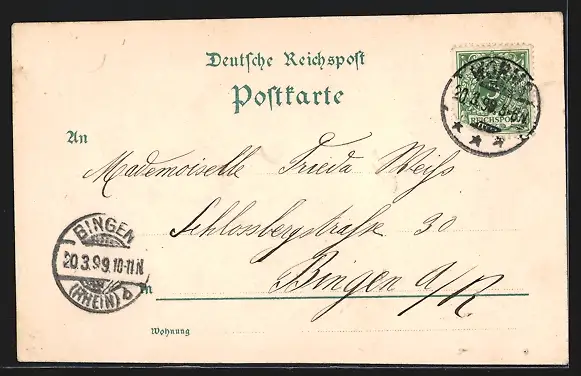 Deutsche Reichspost
Postkarte
WORMS
20.3.99.
REICHSPOST
An
Mademoiselle Frieda Weiſs
Schlossbergstraße 30
BINGEN
20.3.99.10-11N.
(RHEIN) d
in Bingen a/R
Wohnung